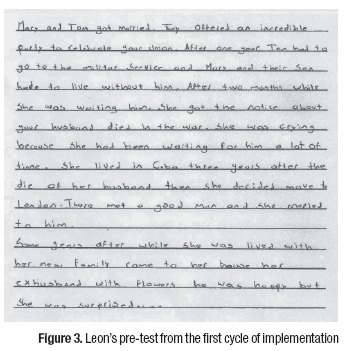 Mary and Tom got married. They offered an incredible
party to celebrate your union. After one year Tom had to
go to the militar service and Mary and their son
hade to live without him. After two months while
she was waiting him. She got the notice about
your husband died in the war. She was crying
because she had been waiting for him a lot of
time. She lived in Cuba three years after the
die of her husband then she decided move to
London. There met a good man and she married
to him.
Some years after while she was lived with
her new family came to her house her
exhusband with flowers he was happy but
she was surprised....
Figure 3. Leon's pre-test from the first cycle of implementation